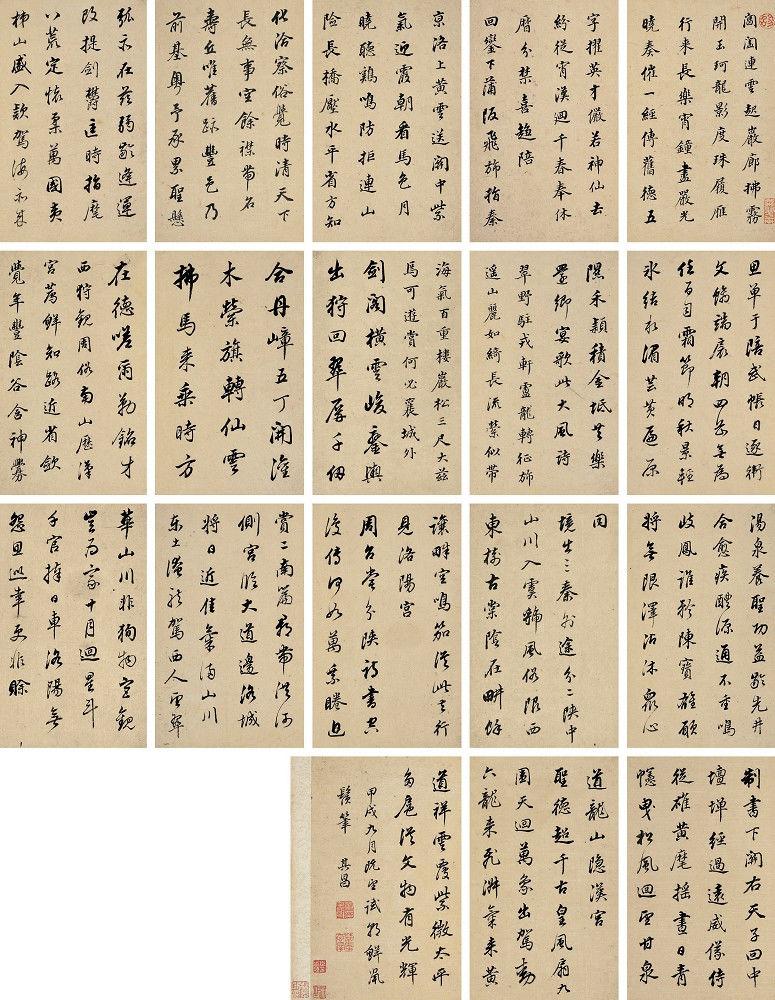 閶闔連雲起巖廊拂霧
開玉珂龍影度珠履雁
行来長樂宵鐘盡嚴光
曉奏催一經傳舊德五
字擢英才儼若神仙去
紛從霄漢迴千春奉休
曆分禁喜趨陪
回鑾下蒲坂飛旆指秦
京洛上黃雲送關中紫
氣迎霞朝看馬色月
曉聽鷄鳴防拒連山
險長橋壓水平省方知
化洽察俗覺時清天下
長無事空餘襟帶名
壽丘唯舊跡豐邑乃
前基粵予承累聖懸
弧亦在茲弱齡逢運
改提劍鬱匡時指麾
八荒定懷柔萬國夷
梯山咸入款駕海亦來
旦單于陪武帳日逐衛
文㮰端扆朝四岳無為
任百司霜節明秋景輕
冰結水湄芸黃遍原
隰禾穎積金坻共樂
還鄉宴歌此大風詩
翠野駐戎軒盧龍轉征旆
遙山麗如綺長流縈似帶
海氣百重樓巖松
馬可遊賞何必襄城外
劍閣橫雲峻鑾輿
出狩回翠屏千仞
合丹嶂五丁開灌
木縈旗轉仙雲
拂馬来乘時方
在德嗟爾勒銘才
西狩觀周俗南山歷漢
宮薦鮮知路近省斂
覺年豐陰谷含神爨
湯泉養聖功益齡先井
合愈疾醴源通不重鳴
岐鳳誰矜陳寶雄願
將無限澤沾沐眾心
同
境出三秦外途分二陝中
山川入虞虢風俗限西
東樹古棠陰在耕餘
讓畔空鳴笳從此去行
見洛陽宮
周召嘗分陝詩書空
復傳何如萬乘睠追
賞二南篇郡帶洪河
側宮臨大道邊洛城
將日近佳氣滿山川
東土淹龍駕西人望翠
華山川非獨物宮觀
豈為家十月迴星斗
千官捧日車洛陽無
怨思巡幸更非賒
制書下關右天子回中
壇墠經過遠威儀侍
從雄黃麾搖晝日青
幰曳松風迴望甘泉
道龍山隱漢宮
聖德超千古皇風扇九
圍天迴萬象出駕動
六龍来飛淑氣来黃
道祥雲覆紫微太平
多扈從文物有光輝
甲戌九月既望試朝鮮鼠
鬚筆 其昌